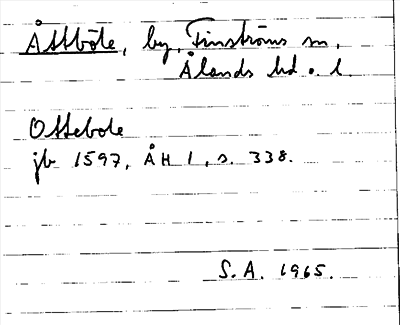 Åttböte, by, Finströms sn,
Ålands hd o. l.
Ottebote
jb 1597, ÅH 1, s. 338.
S.A. 1965.